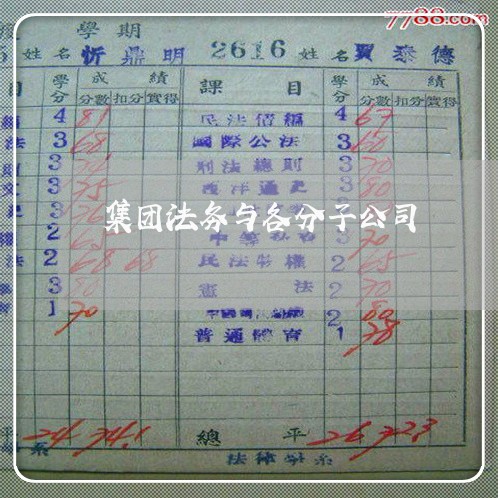 7788.com
學期
姓名 忻鼎明 2616 姓名 賈泰德
目 學分 成績 課目 學分 成績
分數 扣分 實得 分數 扣分 實得
4 81 民法債編 4 67
法 3 68 國際公法 3 60
3 刑法總則 3 70
3 75 西洋通史 3 80
3
集团法务与各分子公司
2 3 70
法 2 68 68 民法物權 2 65
3 80 憲法 2 70
1 70 2 80
普通體育 1 78
平 24 74.1 總平 26 72.3
系 法律學系